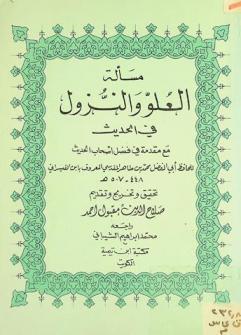 مسألة
العلو والنزول
في الحديث
مع مقدمة في فضل أصحاب الحديث
للحافظ أبي الفضل محمد بن طاهر المقدسي المعروف بابن القيسراني
٤٤٨ - ٥٠٧ هـ
تحقيق وتخريج وتقديم
صلاح الدين مقبول أحمد
راجعه
محمد إبراهيم الشيباني
مكتبة ابن تيمية
الكويت